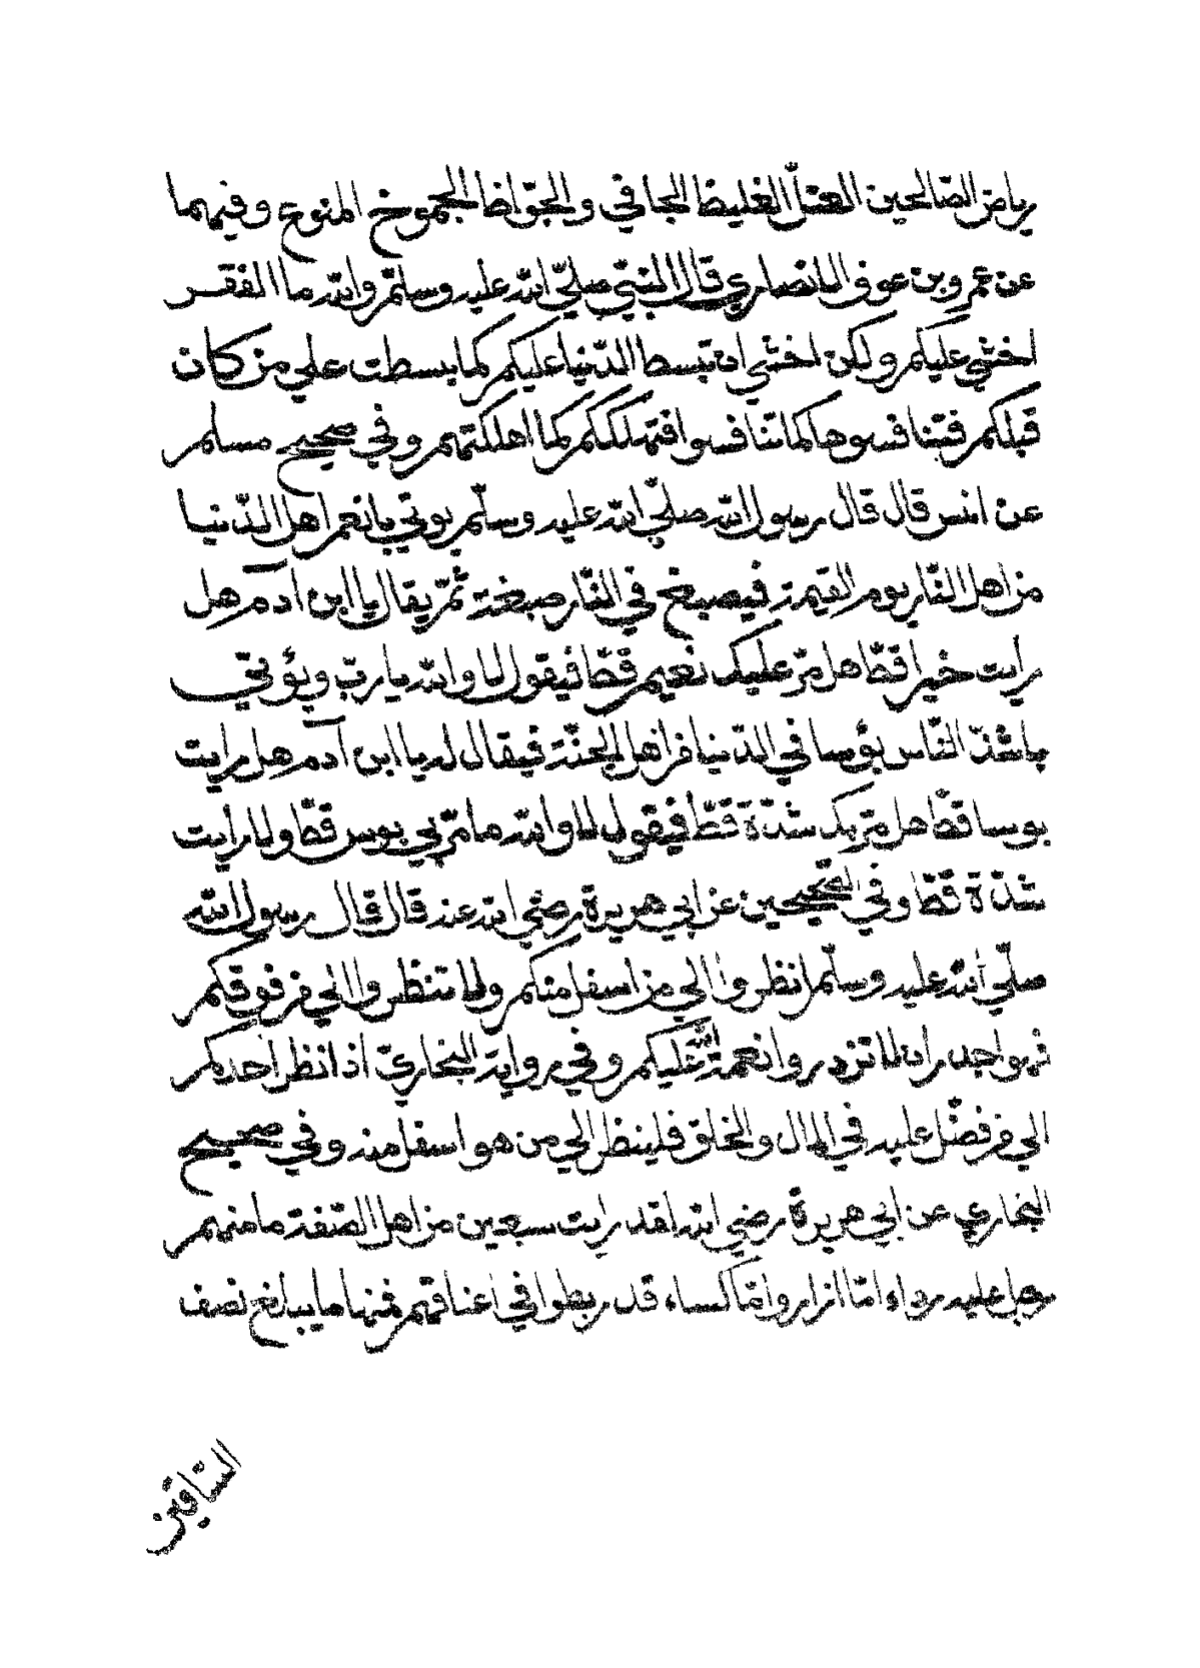 رياض الصّالحين العتلّ الغليظ الجافي والجوّاظ الجموخ المنوع وفيهما
عن عمرو بن عوف الانصاري قال النبّي صلّي الله عليه وسلّم والله ما الفقر
اخشي عليكم ولكن اخشي ان تبسط الدّنيا عليكم كما بسطت علي من كان
قبلكم فتنافسوها كما تنافسوا فتهلككم كما اهلكتهم وفي صحيح مسلم
عن انس قال قال رسول الله صلّي الله عليه وسلّم يوتي بانعم اهل الدّنيا
من اهل النّار يوم القيمة فيصبغ في النّار صبغة ثمّ يقال يا ابن آدم هل
رايت خيرا قطّ هل مرّ عليك نعيم قطّ فيقول لا والله يا ربّ ويؤتي
باشدّ النّاس بؤسا في الدّنيا من اهل الجنّة فيقال له يا ابن آدم هل رايت
بوسا قطّ هل مرّ بك شدّة قطّ فيقول لا والله ما مرّ بي بوس قطّ ولا رايت
شدّة قطّ وفي الصّحيحين عن ابي هريرة رضي الله عنه قال قال رسول الله
صلّي الله عليه وسلّم انظروا الي من اسفل منكم ولا تنظروا الي من فوقكم
فهو اجدر ان لا تزدروا نعمة الله عليكم وفي رواية البخاريّ اذا نظر احدكم
الي من فضّل عليه في المال والخلق فلينظر الي من هو اسفل منه وفي صحيح
البخاري عن ابي هريرة رضي الله لقد رايت سبعين من اهل الصّفة ما منهم
رجل عليه رداء امّا ازار وامّا كساء قد ربطوا في اعناقهم فمنها ما يبلغ نصف
السّاقين